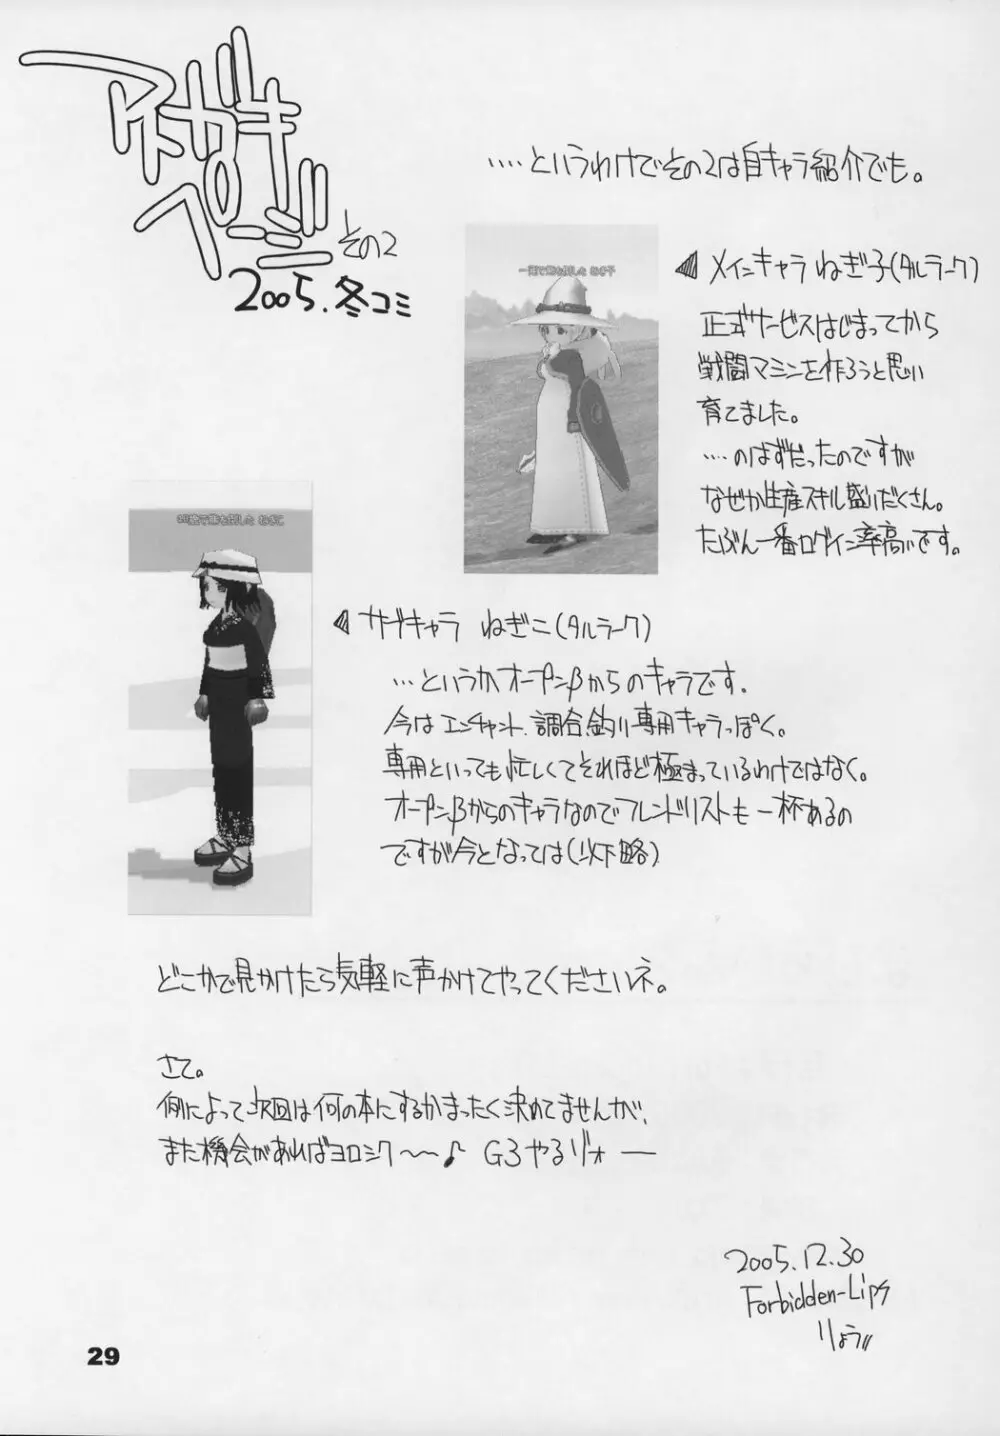 アトガキ
ページ
その2
2005.冬コミ
‥‥というわけでその2は自キャラ紹介でも。
メインキャラ ねぎ子(タルラーク)
正式サービスはじまってから
戦闘マシンを作ろうと思い
育てました。
‥‥のはずだったのですが
なぜか生産スキル盛りだくさん。
たぶん一番ログイン率高いです。
サブキャラ ねぎこ(タルラーク)
…というかオープンβからのキャラです。
今はエンチャント、調合、釣り専用キャラっぽく。
専用といっても忙しくてそれほど極まっているわけではなく。
オープンβからのキャラなのでフレンドリストも一杯あるの
ですが今となっては(以下略)
どこかで見かけたら気軽に声かけてやってくださいネ。
さて。
例によって次回は何の本にするかまったく決めてませんが、
また機会があればヨロシク〜〜♪ G3やるゾォー
2005.12.30
Forbidden-Lips
りょう
29